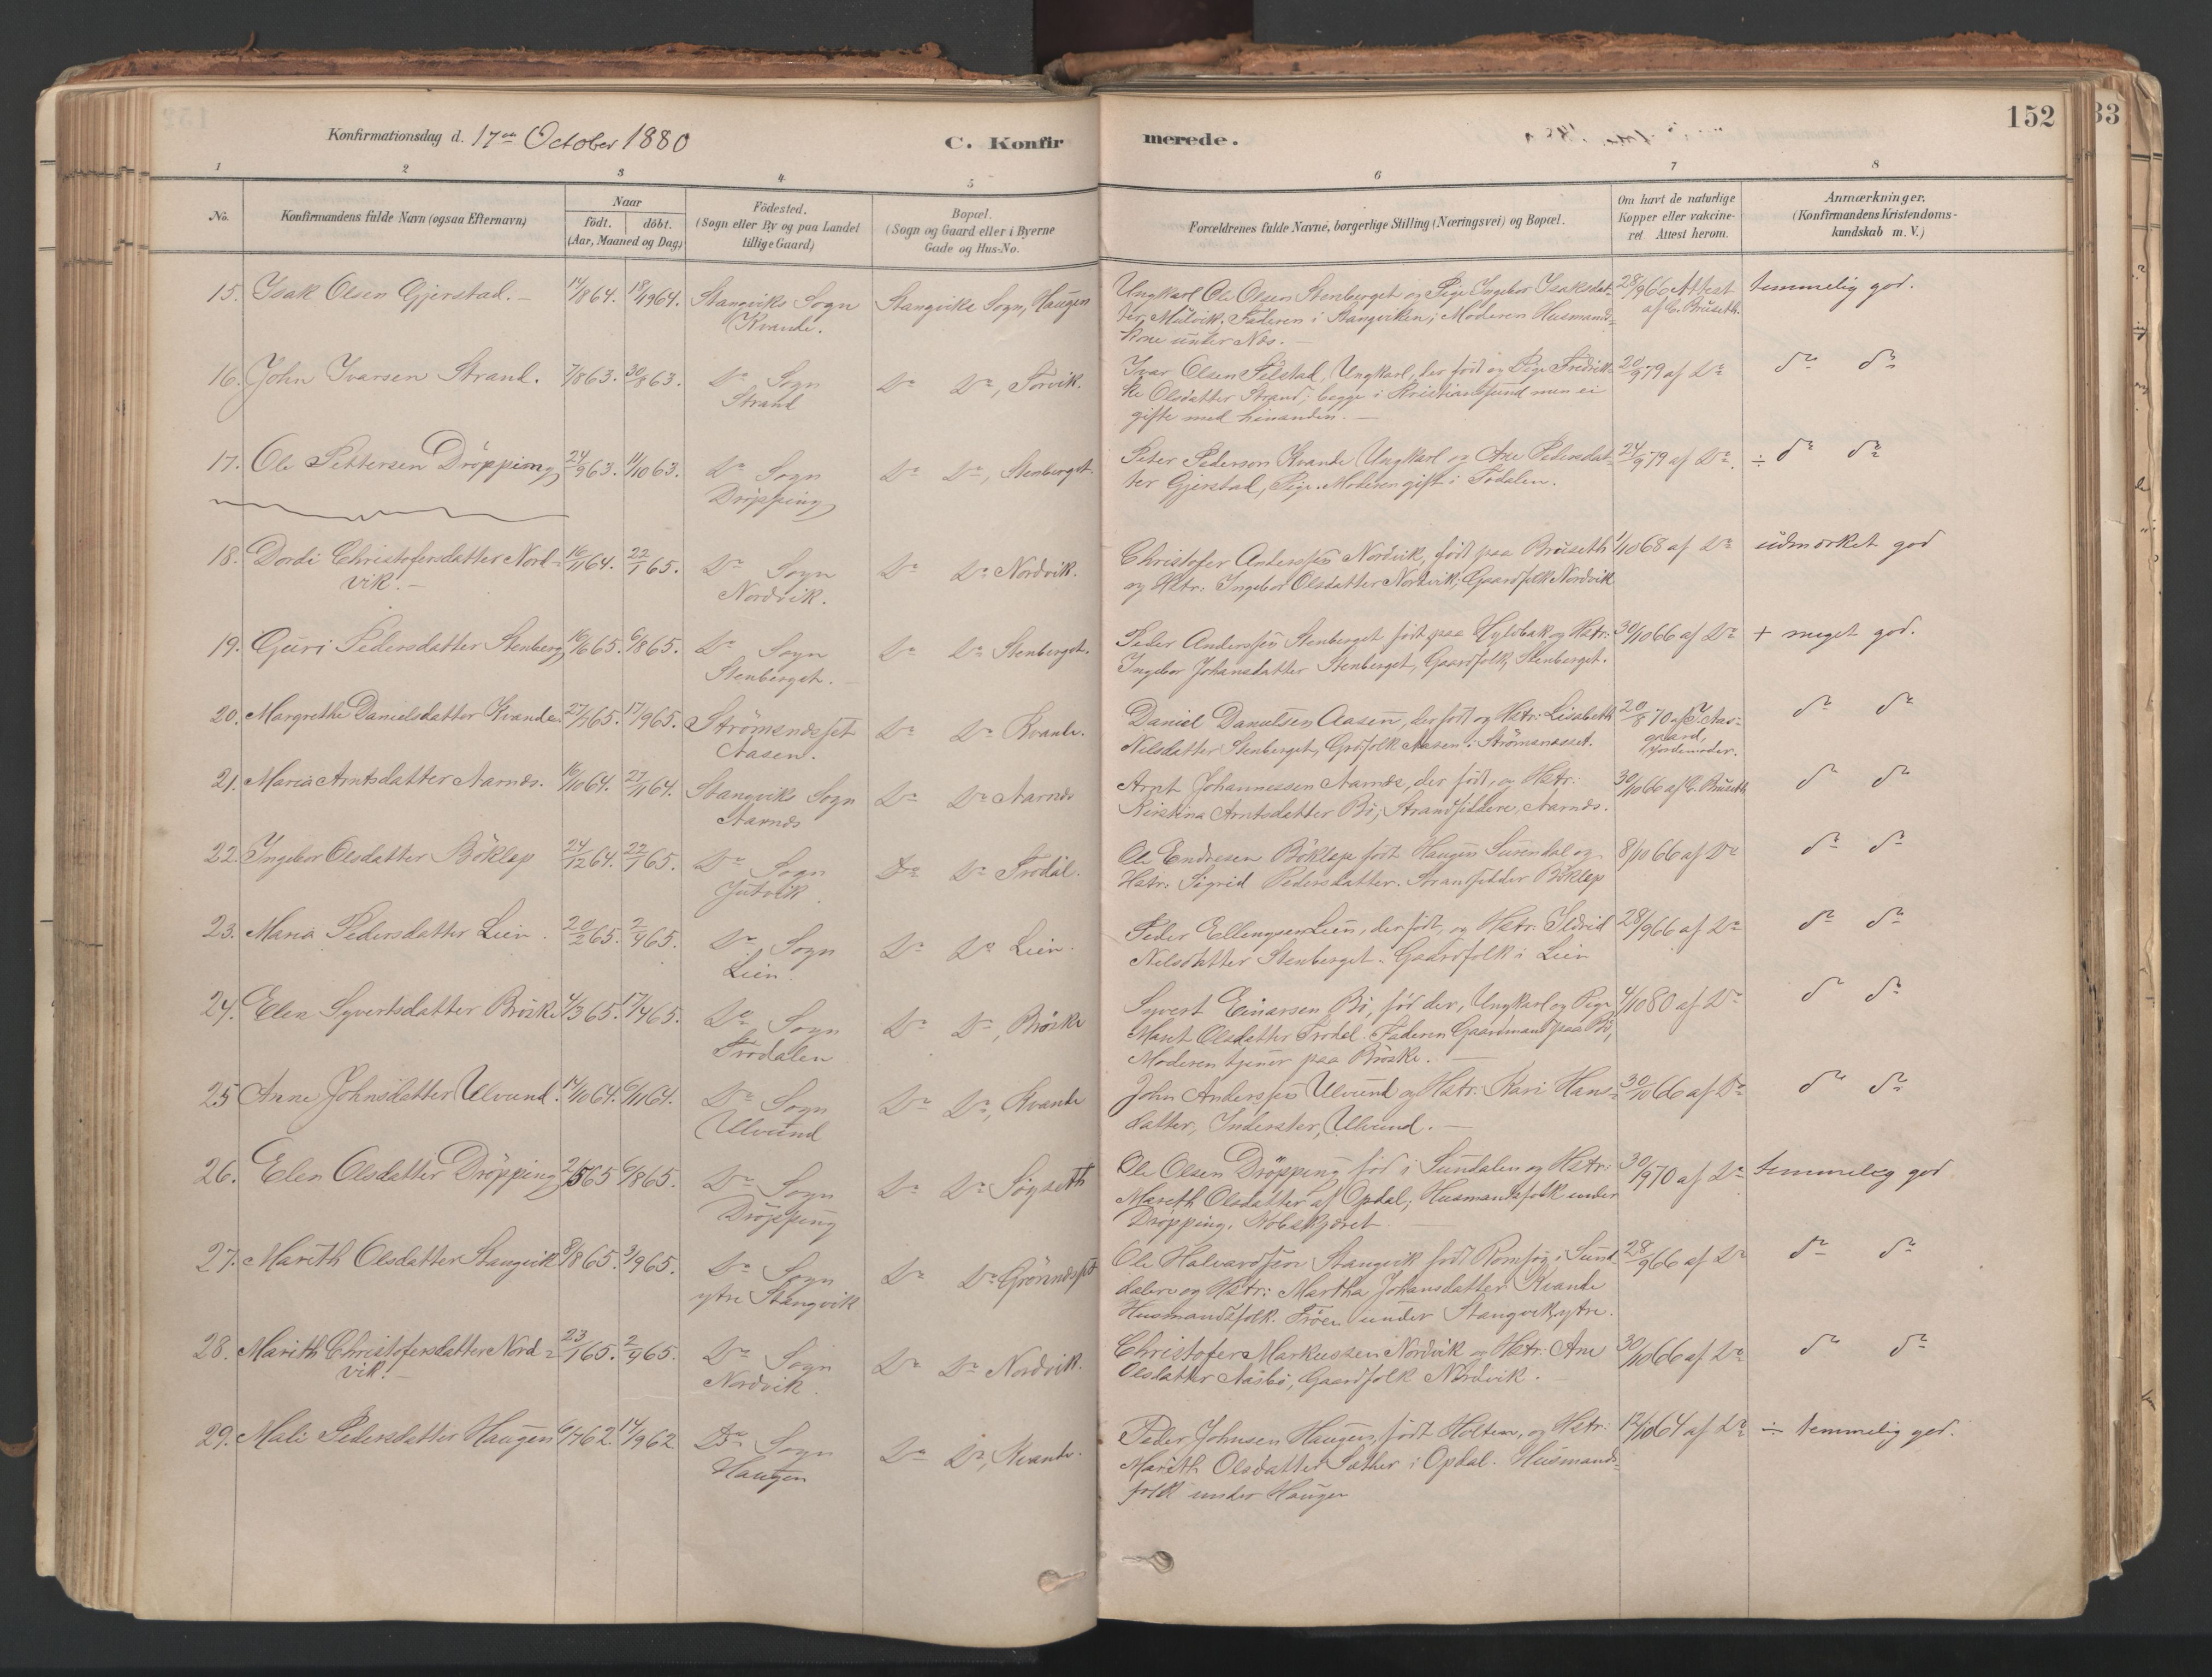 Konfirmationsdag d. 17de October 1880
C. Konfirmerede.
152
33
1 2 3 4 5 6 7 8
No.
Konfirmandens fulde Navn (ogsaa Efternavn)
Naar
födt. döbt.
(Aar, Maaned og Dag)
Födested.
(Sogn eller By og paa Landet
tillige Gaard)
Bopæl.
(Sogn og Gaard eller i Byerne
Gade og Hus-No.
Forældrenes fulde Navne, borgerlige Stilling (Næringsvei) og Bopæl.
Om havt de naturlige
Kopper eller vakcine-
ret Attest herom.
Anmærkninger.
(Konfirmandens Kristendoms-
kundskab m. V.)
15. Isak Olsen Gjerstad. 14/8 64. 18/9 64. Stangviks Sogn Kvande. Stangviks Sogn, Haugen
Ungkarl Ole Olsen Stenberget og Pige Ingebor Isaksdat-
ter Mulvik, Faderen i Stangviken; Moderen Husmands-
kone under Næs.
28/9 66 Attest af C. Bruseth. temmelig god.
16. John Ivarsen Strand. 7/8 63. 30/8 63. Do Sogn Strand Do Do, Torvik.
Ivar Olsen Telstad, Ungkarl, der född og Pige Fredrik-
ke Olsdatter Strand; begge i Kristiansund men ei
gifte med hinanden.
20/9 79 af Do do do
17. Ole Pettersen Dröpping 24/9 63. 11/10 63. Do Sogn Dröpping Do Do, Stenberget.
Peter Pederson Kvande Ungkarl og Ane Pedersdat-
ter Gjerstad, Pige. Moderen gift i Todalen.
24/9 79 af Do. ÷ do do
18. Dordi Christofersdatter Nord-
vik. 16/11 64. 22/1 65. Do Sogn Nordvik. Do Do Nordvik.
Christofer Anderssen Nordvik, född paa Bruseth
og Hstr: Ingebor Olsdatter Nordvik; Gaardfolk Nordvik
1/10 68 af Do udmærket god
19. Guri Pedersdatter Stenberg 16/6 65. 6/8 65. Do Sogn Stenberget. Do Do Stenberget.
Peder Anderssen Stenberget född paa Hyldbak og Hstr:
Ingebor Johansdatter Stenberget, Gaardfolk, Stenberget.
30/10 66 af Do + meget god.
20. Margrethe Danielsdatter Kvande 27/7 65. 17/9 65. Strömsnæsset Aasen. Do Do Kvande.
Daniel Danielsen Aasen, der född og Hstr: Lisabeth
Nilsdatter Stenberget, Grdfolk Aasen i Strömsnæsset.
20/8 70 af Aas-
gaard,
Jordemoder. do do
21. Maria Arntsdatter Aarnæs. 16/10 64. 27/11 64. Stangviks Sogn Aarnæs Do Do Aarnæs
Arnt Johannessen Aarnæs, der född, og Hstr:
Kirstina Arntsdatter Bö; Strandsiddere, Aarnæs.
30/10 66 af C. Bruseth do do
22. Ingebor Olsdatter Böklep 24/12 64. 22/1 65. Do Sogn Jutvik. Do Do Trödal.
Ole Endresen Böklep född Haugen Surendal og
Hstr: Sigrid Pedersdatter. Strandsidder Böklep
8/10 66 af Do do do
23. Maria Pedersdatter Lien. 20/2 65. 2/4 65. Do Sogn Lien. Do Do Lien.
Peder Ellengsen Lien, der född, og Hstr: Ildrid
Nilsdatter Stenberget. Gaardfolk i Lien
28/9 66 af Do do do
24. Elen Syvertsdatter Bröske 4/3 65. 17/4 65. Do Sogn Trödalen Do Do, Bröske
Syvert Einarsen Bö, föd der, Ungkarl og Pige
Maret Olsdatter Trodal. Faderen Gaardmand paa Bö,
Moderen tjener paa Bröske.
4/10 80 af Do do do
25 Anne Johnsdatter Ulvund. 14/10 64. 6/11 64. Do Sogn Ulvund Do Do, Kvande
John Anderssen Ulvund og Hstr: Kari Hans-
datter, Inderster, Ulvund.
30/10 66 af Do do do
26. Elen Olsdatter Dröpping 2/5 65 6/8 65. Do Sogn Dröpping Do Do Sögseth
Ole Olsen Dröpping föd i Sundalen og Hstr:
Mareth Olsdatter af Opdal; Husmandsfolk under
Dröpping, Kobskjæret.
30/9 70 af Do temmelig god
27. Marith Olsdatter Stangvik 8/8 65. 3/9 65. Do Sogn ytre Stangvik Do Do Grönnæsset
Ole Halvardssen Stangvik född Romfog i Sund-
dalen og Hstr: Martha Johansdatter Kvande
Husmandsfolk. Tröen under Stangvik ytre.
28/9 66 af Do do do
28. Marith Christofersdatter Nord-
vik. 23/1 65. 2/4 65. Do Sogn Nordvik. Do Do Nordvik.
Christofer Markussen Nordvik og Hstr: Ane
Olsdatter Aasbö, Gaardfolk Nordvik.
30/10 66 af Do do do
29. Mali Pedersdatter Haugen 6/7 62. 14/9 62 Do Sogn Haugen Do Do, Kvande.
Peder Johnsen Haugen, född Holten, og Hstr:
Marith Olsdatter Sæther i Opdal. Husmands-
folk under Haugen
12/10 64 af Do ÷ temmelig god.